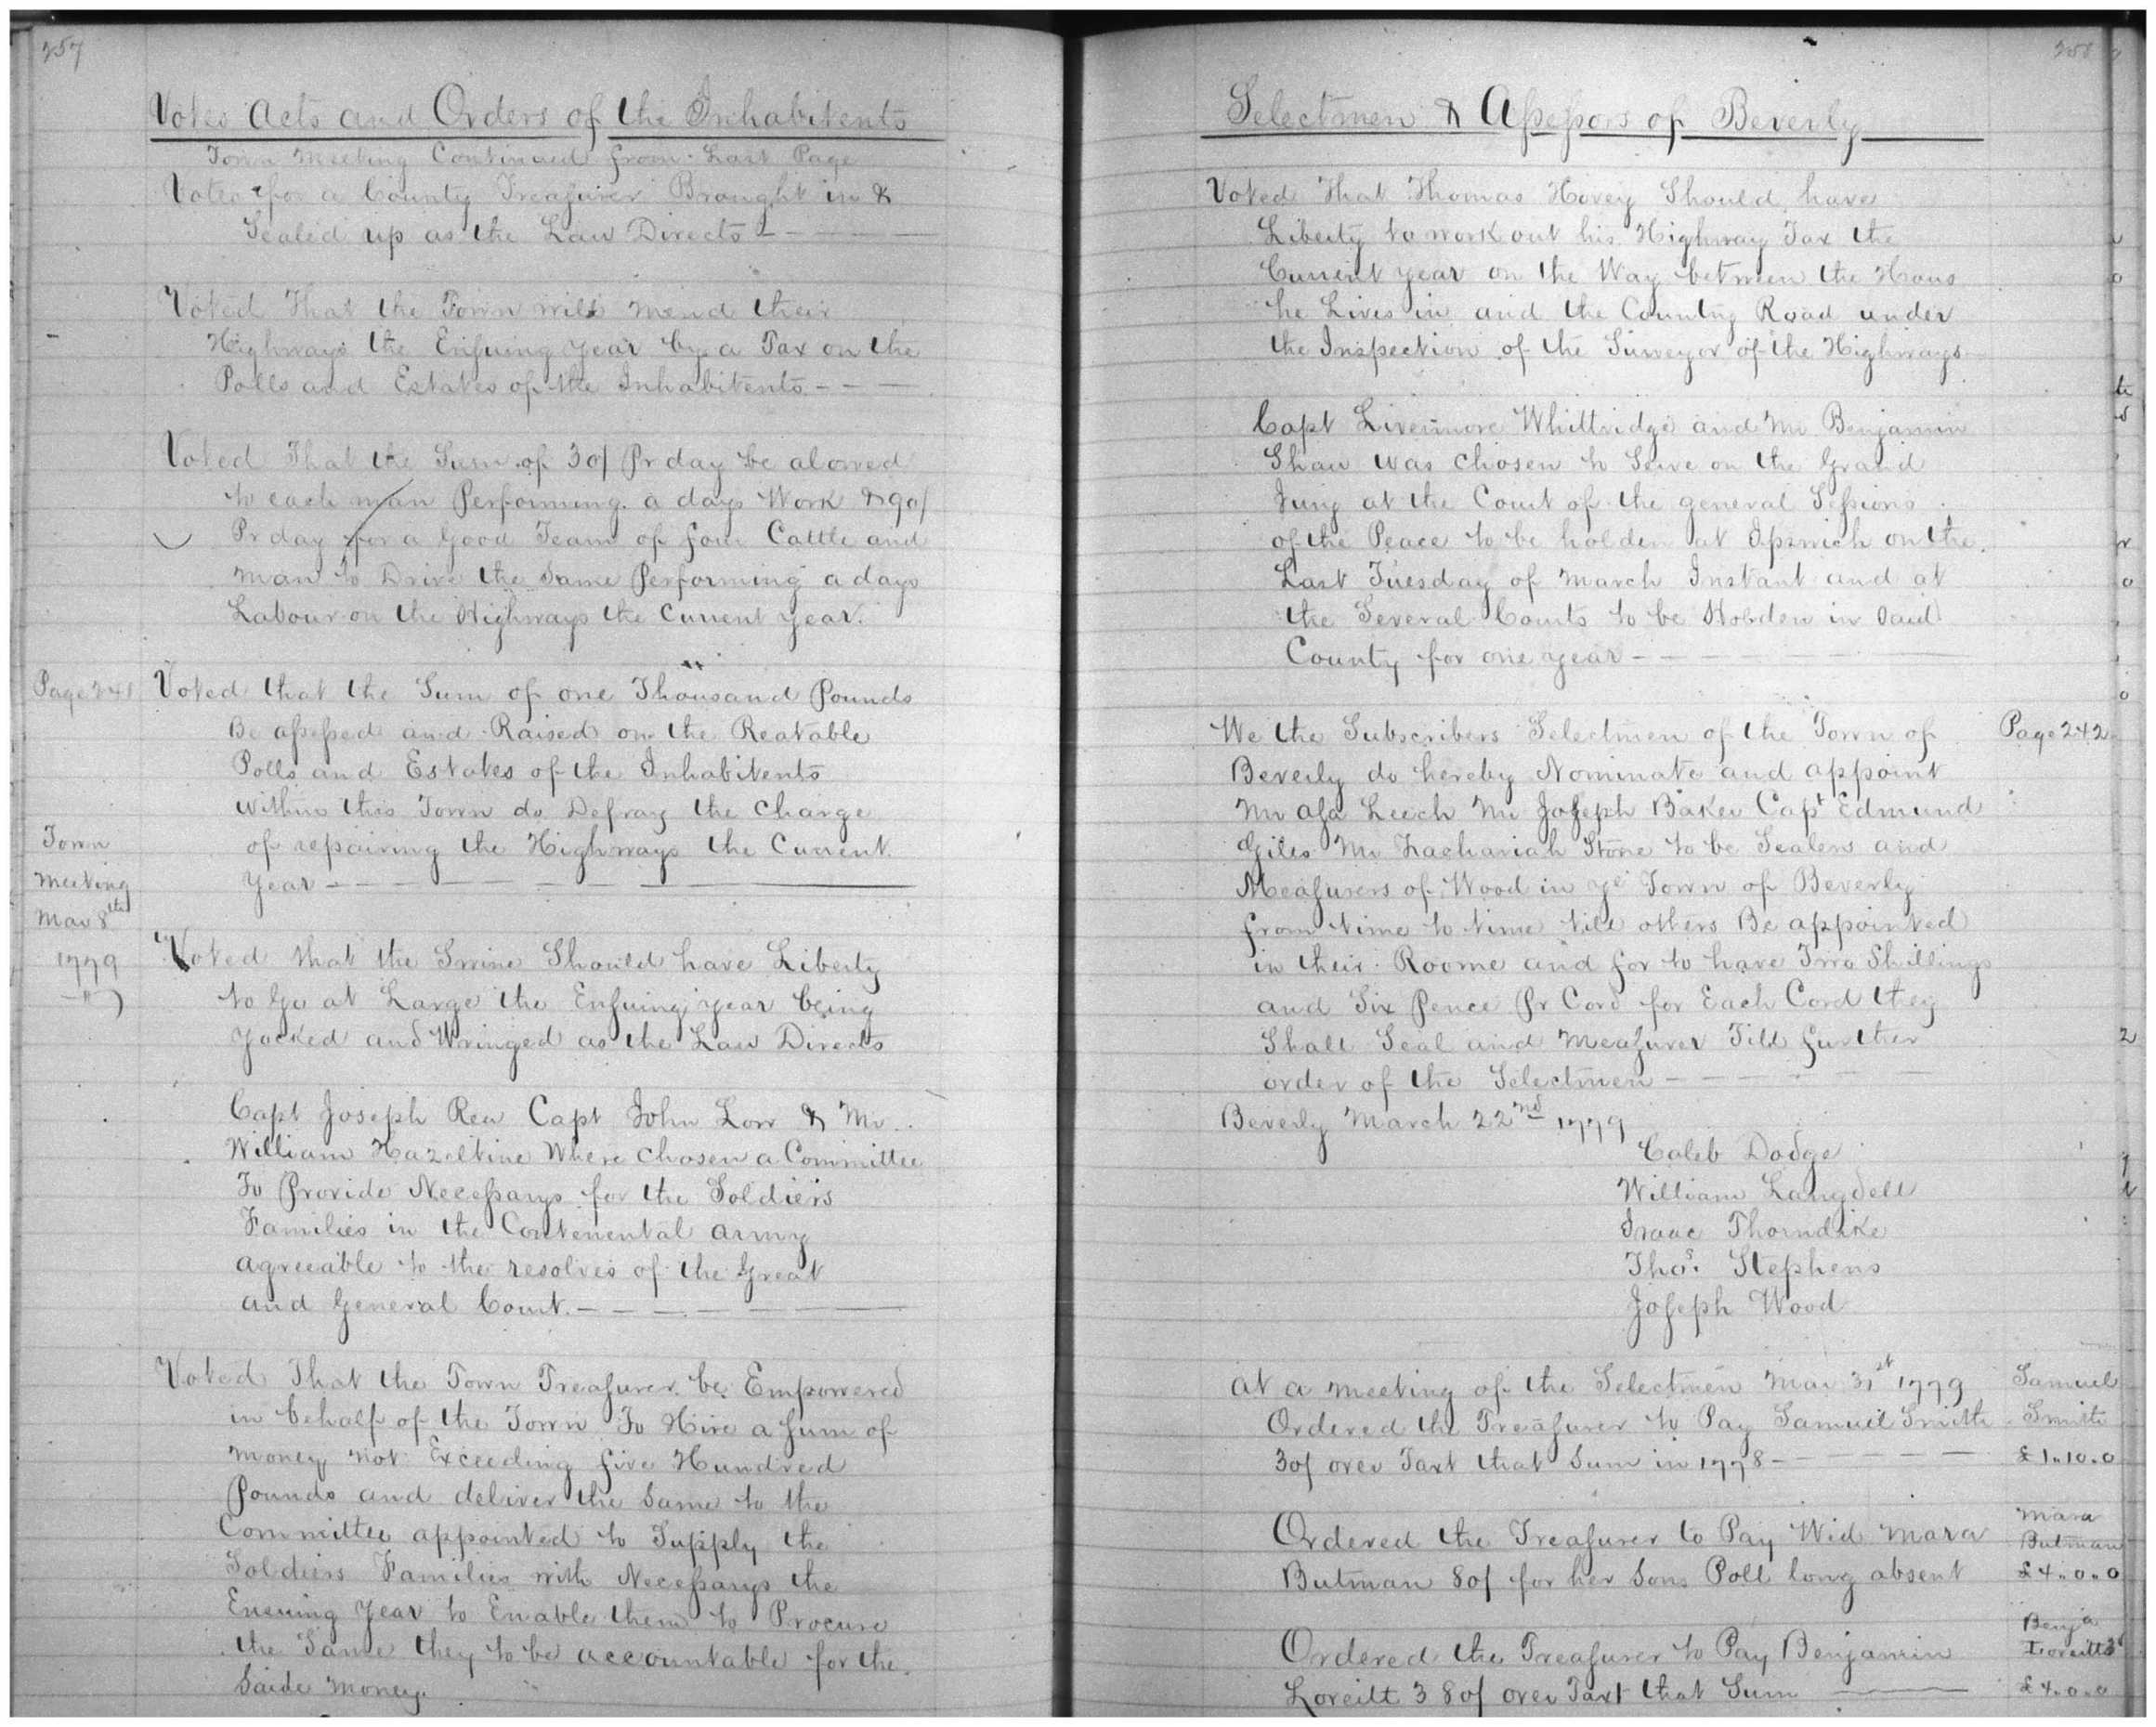 257
Votes Acts and Orders of the Inhabitents
Town Meeting Continued from Last Page
Votes for a County Treasurer Brought in &
Sealed up as the Law Directs
Voted That the Town will mend their
Highways the Ensuing year by a Tax on the
Polls and Estates of the Inhabitents
Voted That the Sum of 30/ Pr day be alowed
to each man Performing a days Work & 90/
Pr day for a Good Team of four Cattle and
man to Drive the Same Performing a days
Labour on the Highways the Current year.
Page 241
Voted that the Sum of one Thousand Pounds
Be assessed and Raised on the Reatable
Polls and Estates of the Inhabitents
within this Town do Defray the Charge
of repairing the Highways the Current
year
Town
Meeting
Mar 8th
1779
Voted that the Swine Should have Liberty
to Go at Large the Ensuing year being
Yocked and Wringed as the Law Directs
Capt Joseph Rea Capt John Low & Mr
William Hazeltine Where chosen a Committee
To Provide Necessarys for the Soldiers
Families in the Contenental army
agreeable to the resolves of the Great
and General Court.
Voted That the Town Treasurer be Empowered
in behalf of the Town To Hire a Sum of
money not Exceeding five Hundred
Pounds and deliver the Same to the
Committee appointed to Supply the
Soldiers Families with Necessarys the
Ensuing Year to Enable them to Procure
the Same they to be accountable for the
Saide money.
258
Selectmen & Assessors of Beverly
Voted That Thomas Hovey Should have
Liberty to work out his Highway Tax the
Current year on the Way between the Hous
he Lives in and the Country Road under
the Inspection of the Surveyor of the Highways
Capt Livermore Whittridge and Mr Benjamin
Shaw was chosen to Serve on the Grand
Jury at the Court of the general Sessions
of the Peace to be holden at Ipswich on the
Last Tuesday of March Instant and at
the Several Courts to be Holden in Said
County for one year
We the Subscribers Selectmen of the Town of
Page 242
Beverly do hereby Nominate and appoint
Mr Asa Leech Mr Joseph Baker Capt Edmund
Giles Mr Zachariah Stone to be Sealers and
Measurers of Wood in ye Town of Beverly
from time to time till others Be appointed
in their Roome and for to have Two Shillings
and Six Pence Pr Cord for Each Cord they
Shall Seal and Measurer Till further
order of the Selectmen
Beverly March 22nd 1779
Caleb Dodge
William Langdell
Isaac Thorndike
Thos. Stephens
Joseph Wood
at a meeting of the Selectmen Mar 31st 1779
Ordered the Treasurer to Pay Samuel Smith
30/ over Taxt that Sum in 1778
Samuel
Smith
£1.10.0
Ordered the Treasurer to Pay Wid Mara
Butman 80/ for her Sons Poll long absent
Mara
Butman
£4.0.0
Ordered the Treasurer to Pay Benjamin
Loveitt 3 80/ over Taxt that Sum
Benja
Loveitt 3d
£4.0.0